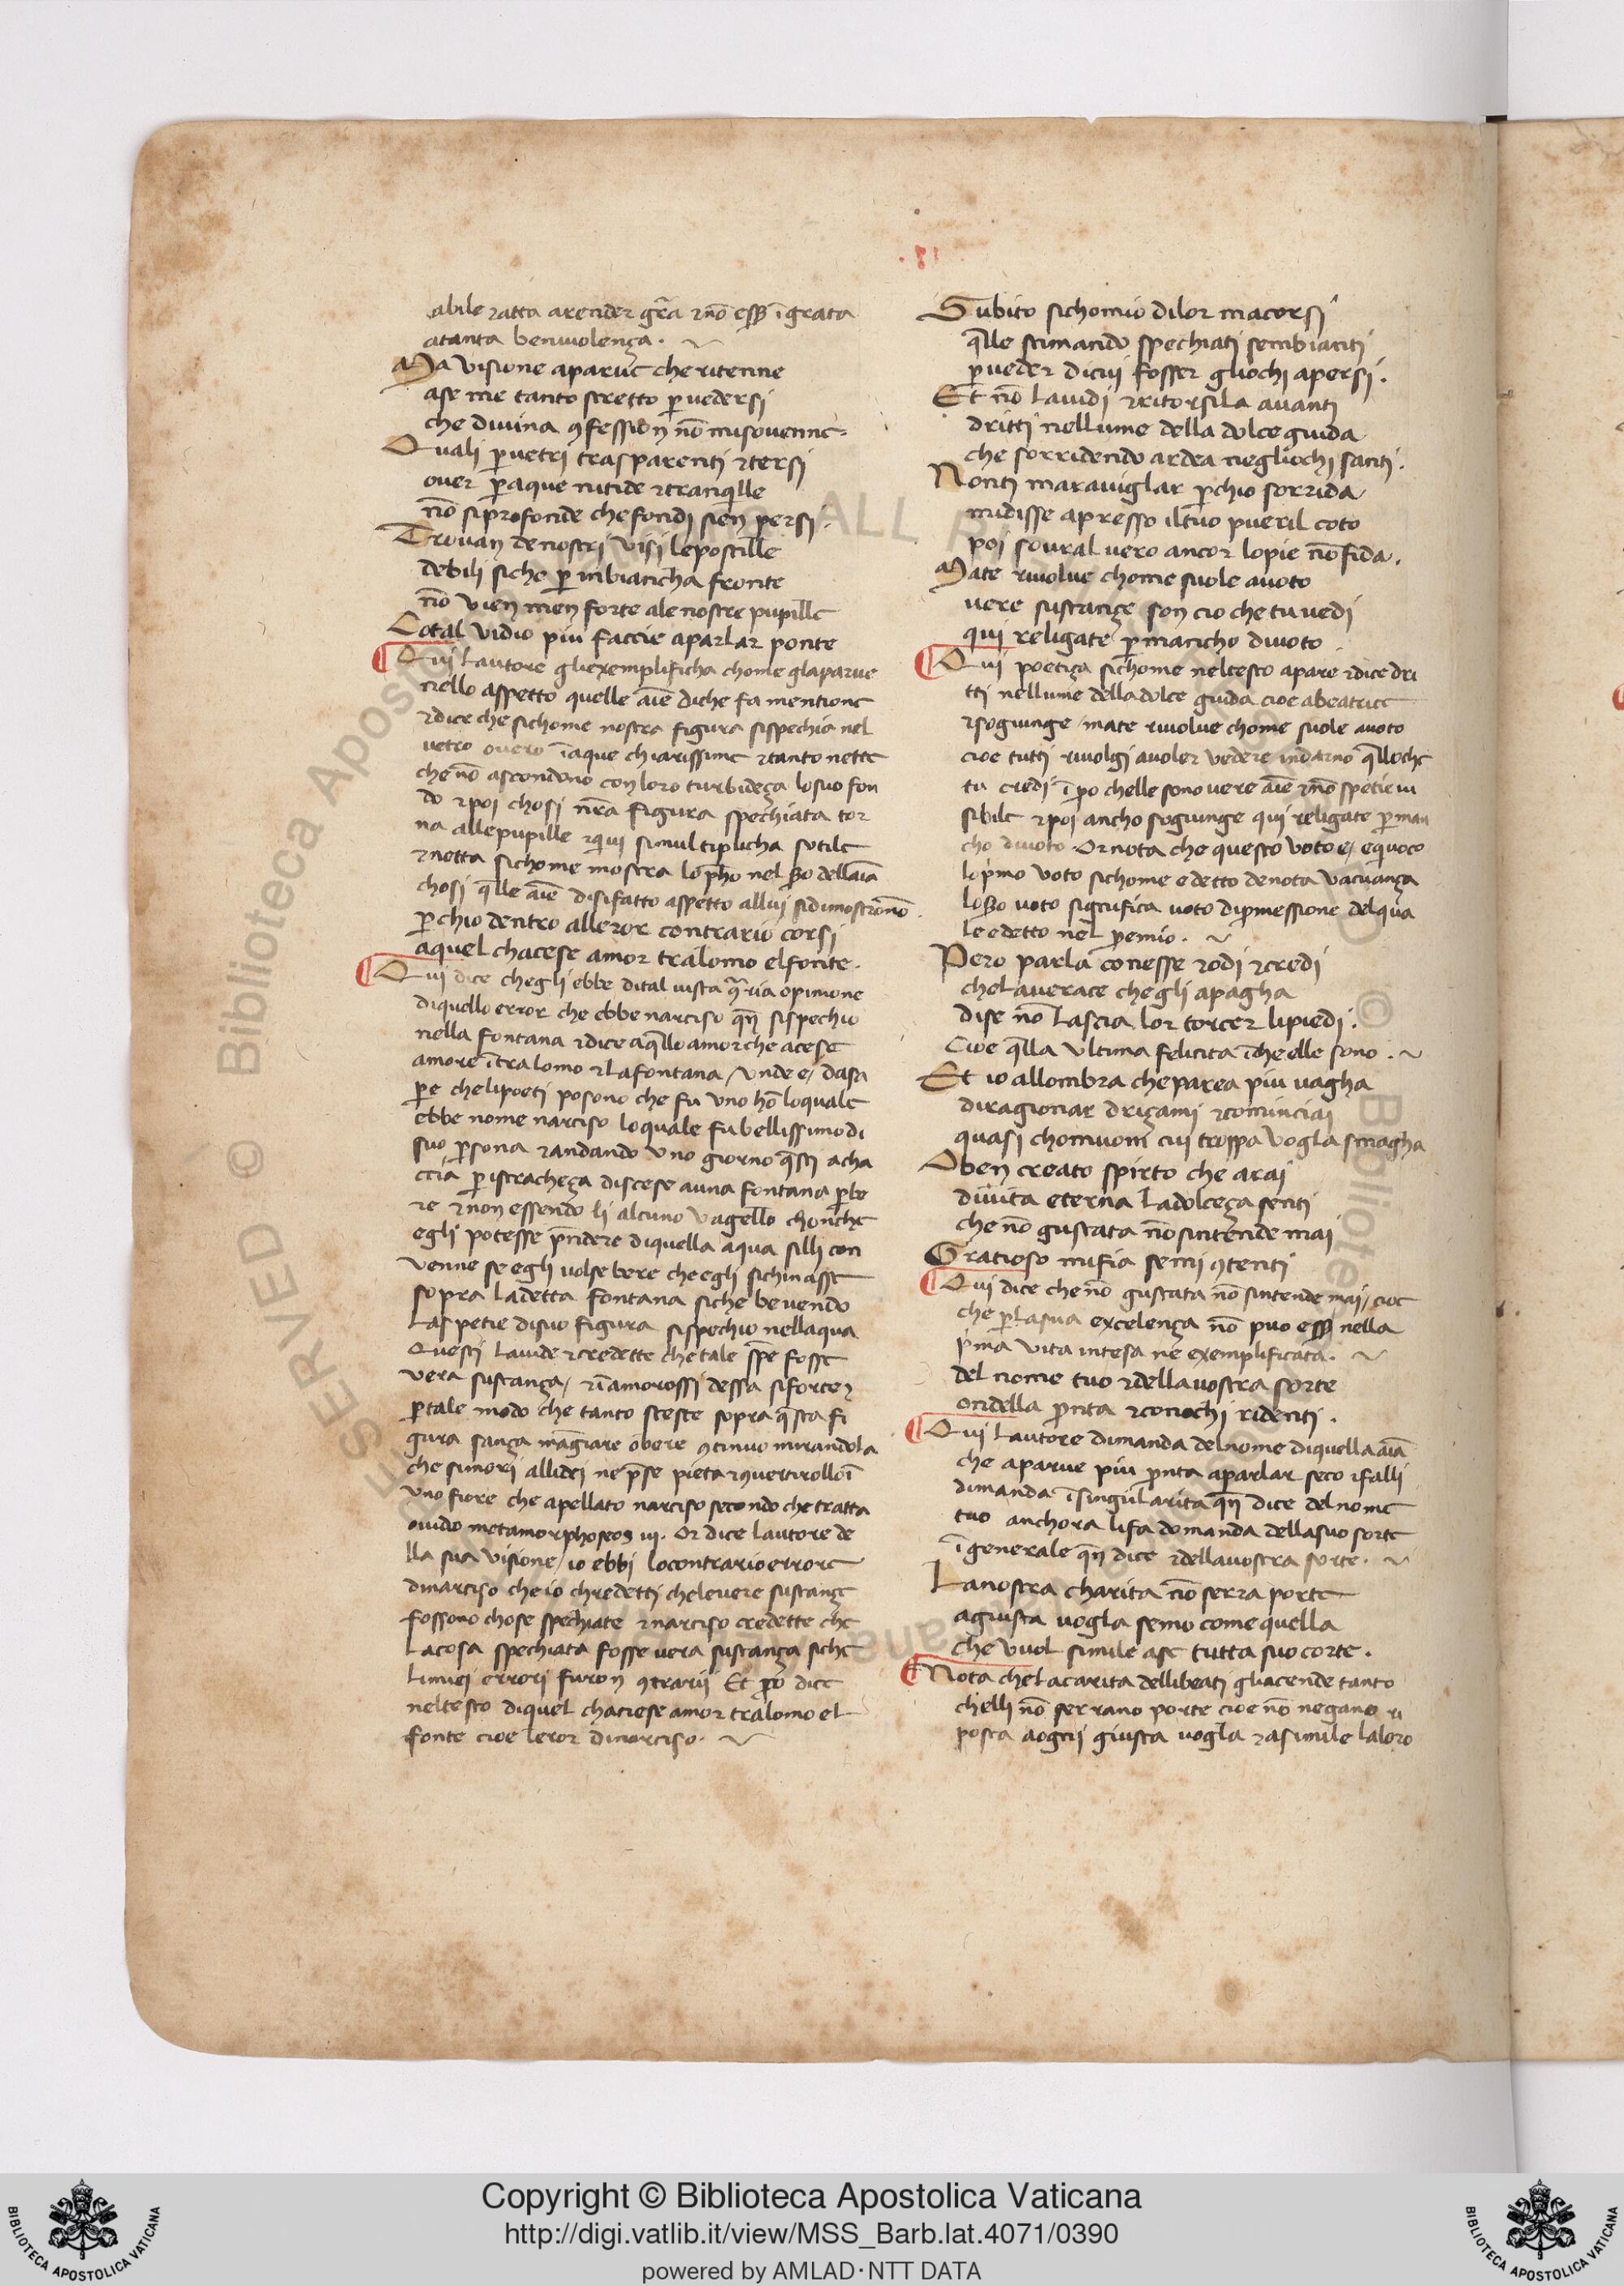 abile ⁊ atta a render gr̄a ⁊ nō esß īgrata
atanta benivolença .
Ma visione aparue che ritenne
ase me tanto stretto p̱ vedersi
che divina ꝯfession nō misovenne
Quali p̱ vetri trasparenti ⁊ tersi
over p̱ aque nitide ⁊ tranquille
nō si profonde che fondi sien persi .
Trovan denostri visi lepostille
debili siche p̱ inbiancha fronte
nō vien men forte ale nostre pupille
Cotal vidio piu faccie aparlar ponte
Qui Lautore gliexemplificha chome glaparue
nello aspetto quelle aīe diche fa mentione
⁊ dice che sichome nostra figura sispechia nel
vetro overo ī aque chiarissime ⁊ tanto nette
che nō ascondono con loro turbideça losuo fon
do ⁊ poi chosi nr̄a figura spechiata tor
na allepupille ⁊ qui simultiplicha sotile
⁊ netta sichome mostra
chosi q̄lle aīe disifatto aspetto allui sidimostrōnō
p̱ chio dentro alleror contrario corsi
aquel chacese amor tralomo elfonte .
Qui dice chegli ebbe dital vista opinione
diquello error che ebbe narciso qn̄ sispechio
nella fontana ⁊ dice aq̄llo amor che acese
amore ītra lomo ⁊ Lafontana / Unde e / dasa
p̱e chelipoeti posono che fu uno hō loquale
ebbe nome narciso loquale fu bellissimo di
suo p̱sona ⁊ andando uno giorno q̄sti acha
ccia p̱ istracheça discese auna fontana p̱ be
re ⁊ non essendo li alcuno vagello chonche
egli potesse p̄ndere diquella aqua silli con
venne se egli volse bere che egli sichinasse
sopra ladetta fontana siche bevendo
Laspetie disuo figura sispechio nellaqua
Questi Lavide ⁊ credette che tale sp̄e fosse
vera sustança / ⁊ īnamorossi dessa siforte ⁊
p̱ tale modo che tanto stette sopra q̄sta fi
gura sança māgiare o bere ꝯtinuo mirandola
che simori allidei ne p̄se pieta ⁊ ꝯvertirollo ī
uno fiore che apellato narciso secondo che tratta
ouidio metamorphoseos iii . Or dice lautore de
lla sua visione / io ebbi locontrario errore
dinarciso che io chredetti chelevere sustançe
fossono chose spechiate ⁊ narciso credette che
Lacosa spechiata fosse vera sustança siche
limiei errori furon ꝯtrarii Et p̱o dice
neltesto diquel chaciese amor tralomo el
fonte cioe leror dinarciso .
Subito sichomio dilor macorsi
q̄lle stimando spechiati sembianti
p̱ veder dicui fosser gliochi apersi .
Et nō Lavidi ⁊ ritorsila avanti
dritti nellume della dolce guida
che sorridendo ardea negliochi santi .
Nonti maraviglar p̱chio sorrida
midisse apresso iltuo pueril coto
poi sovral vero ancor lopie nō fida .
Mate rivolve chome suole avoto
vere sustançe son cio che tu vedi
qui religate p̱ mancho di voto
Qui poetiça sichome neltesto apare ⁊ dice dri
tti nellume delladolce guida cioe abeatrice
⁊ sogiunge / mate rivolve chome suole avoto
cioe tutti rivolgi avoler vedere indarno q̄lloche
tu credi ī p̱o chelle sono vere aīe ⁊ nō spetie vi
sibile ⁊ poi ancho sogiunge qui religate p̱ man
cho divoto . Or nota che questo voto e / equoco
loprimo voto sichome e detto denota vacuança
voto significa voto dip̱messione delqua
le e detto nel p̱emio .
Pero parla conesse ⁊ odi ⁊ credi
chelaverace chegli apagha
dise nō Lascia lor torcer lipiedi .
Cioe q̄lla ultima felicita ī che elle sono .
Et io allombra che parea piu vagha
diragionar driçami ⁊ cominciai
quasi chomuom cui troppa vogla smagha
O ben creato spirto che arai
divita eterna Ladolceça senti
che nō gustata nō sintende mai
Gratioso mifia semi ꝯtenti
Qui dice che nō gustata nō sintende mai / cioe
che p̱ Lasua excelença nō puo esß nella
p̱ma vita intesa ne exemplificata .
del nome tuo ⁊ dellavostra sorte
ondella p̱nta ⁊ conochi ridenti .
Qui Lautore dimanda delnome diquella aīa
che aparue piu p̱nta aparlar seco ⁊ falli
dimanda ī singularita qn̄ dice del nome
tuo anchora lifa domanda dellasuo sorte
ī generale qn̄ dice ⁊ dellavostra sorte .
Lanostra charita nō serra porte
agiusta vogla semo come quella
che vuol simile ase tutta suo corte .
Nota chelacarita dellibeati gliacende tanto
chelli nō serrano porte cioe nō negano ri
posta aogni giusta vogla ⁊ asimile laloro
Copyright © Biblioteca Apostolica Vaticana
http://digi.vatlib.it/view/MSS_Barb.lat.4071/0390
powered by AMLAD·NTT DATA
BIBLIOTECA APOSTOLICA VATICANA
BIBLIOTECA APOSTOLICA VATICANA